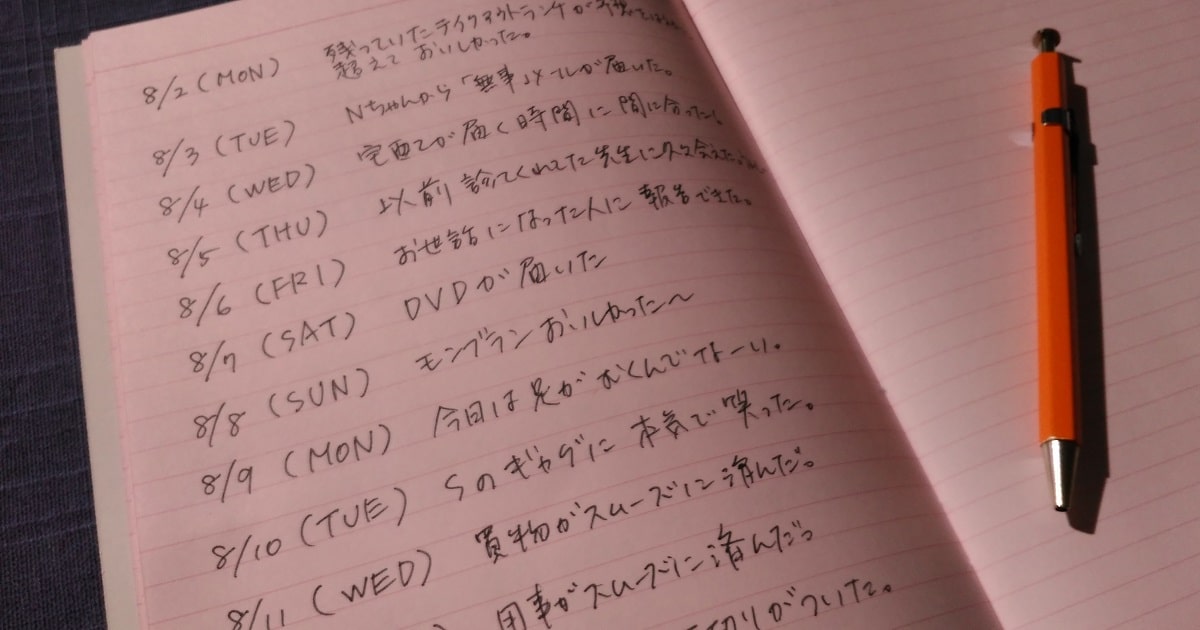 8/2 (MON) 残っていたテイクアウトランチが
超えておいしかった。
8/3 (TUE) Nちゃんから「無事」メールが届いた。
8/4 (WED) 宅配てが届く時間に間に合った!
8/5 (THU) 以前診てくれてた先生に久々会えた
8/6 (FRI) お世話になった人に報告できた。
8/7 (SAT) DVDが届いた
8/8 (SUN) モンブランおいしかった〜
8/9 (MON) 今日は足がむくんでなーい。
8/10 (TUE) Sのギャグに本気で笑った。
8/11 (WED) 買物がスムーズに済んだ。
用事がスムーズに済んだ。
切りがついた。